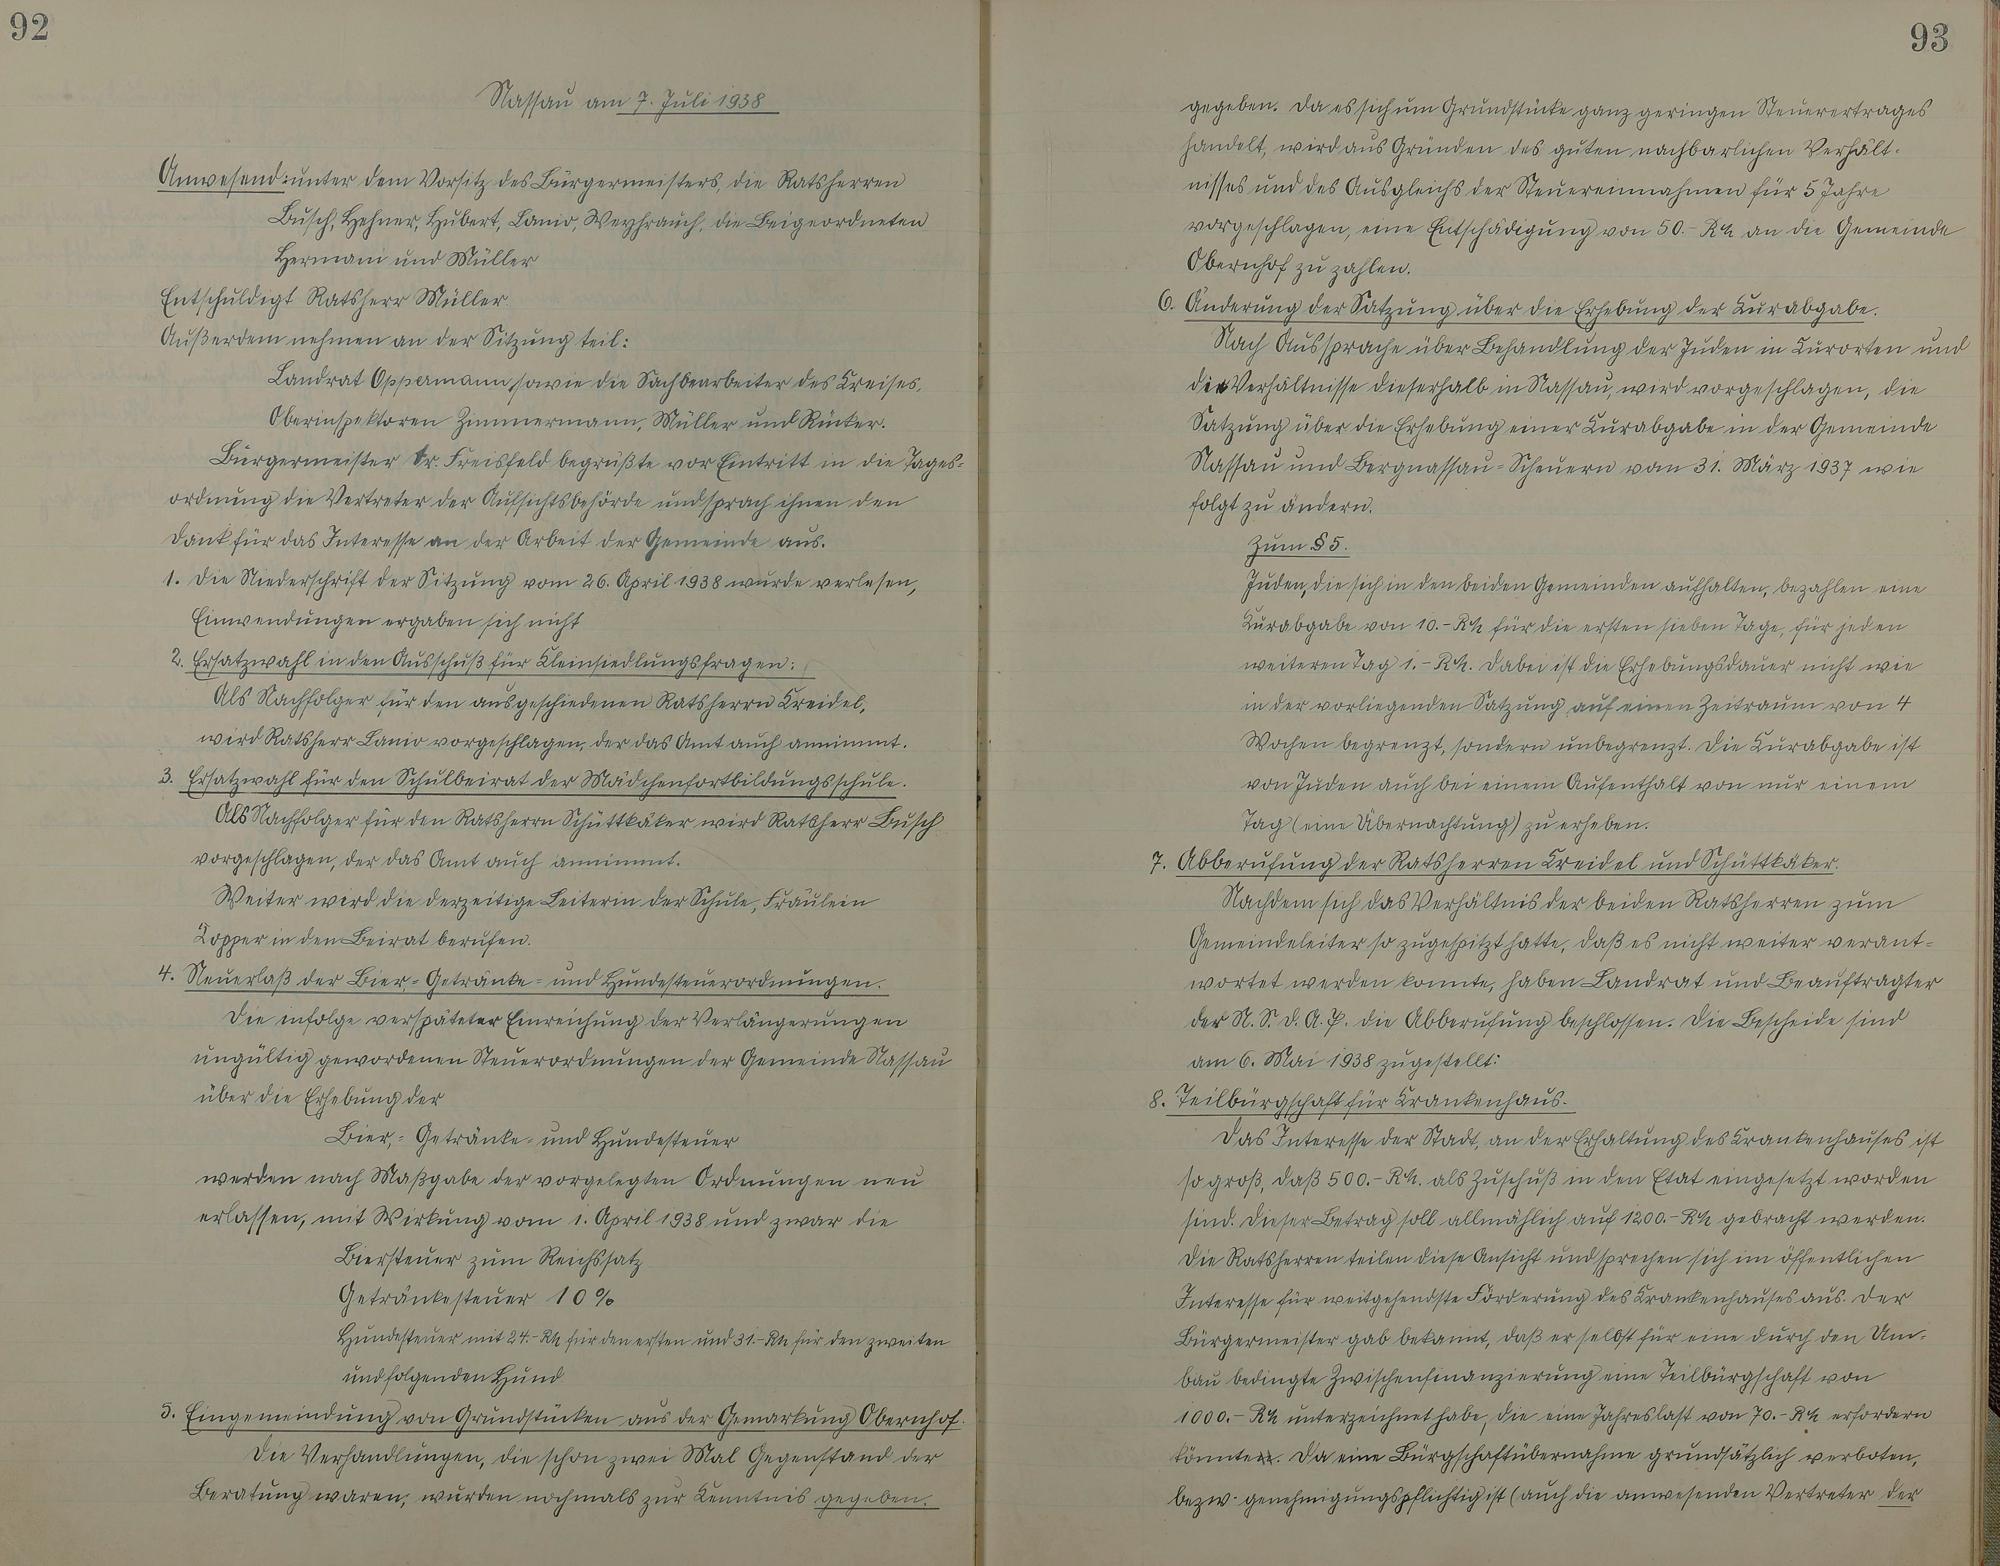 92
Nassau am 7. Juli 1938
Anwesend: unter dem Vorsitz des Bürgermeisters, die Ratsherren
Busch, Hehner, Hubert, Lanio, Weyhrauch, die Beigeordneten
Hermani und Müller
Entschuldigt Ratsherr Müller.
Außerdem nehmen an der Sitzung teil:
Landrat Oppermann, sowie die Sachbearbeiter des Kreises,
Oberinspektoren Zimmermann, Müller und Rücker.
Bürgermeister Dr. Freisfeld begrüßte vor Eintritt in die Tages-
ordnung die Vertreter der Aufsichtsbehörde und sprach ihnen den
Dank für das Interesse an der Arbeit der Gemeinde aus.
1. Die Niederschrift der Sitzung vom 26. April 1938 wurde verlesen,
Einwendungen ergaben sich nicht
2. Ersatzwahl in den Ausschuß für Kleinsiedlungsfragen:
Als Nachfolger für den ausgeschiedenen Ratsherrn Kreidel,
wird Ratsherr Lanio vorgeschlagen, der das Amt auch annimmt.
3. Ersatzwahl für den Schulbeirat der Mädchenfortbildungsschule.
Als Nachfolger für den Ratsherrn Schüttkäker wird Ratsherr Busch
vorgeschlagen, der das Amt auch annimmt.
Weiter wird die derzeitige Leiterin der Schule, Fräulein
Kopper in den Beirat berufen.
4. Neuerlaß der Bier,- Getränke- und Hundesteuerordnungen.
Die infolge verspäteter Einreichung der Verlängerungen
ungültig gewordenen Steuerordnungen der Gemeinde Nassau
über die Erhebung der
Bier,- Getränke- und Hundesteuer
werden nach Maßgabe der vorgelegten Ordnungen neu
erlassen, mit Wirkung vom 1. April 1938 und zwar die
Biersteuer zum Reichssatz
Getränkesteuer 10 %
Hundesteuer mit 24.- RM für den ersten und 31.- RM für den zweiten
und folgenden Hund
5. Eingemeindung von Grundstücken aus der Gemarkung Obernhof.
Die Verhandlungen, die schon zwei Mal Gegenstand der
Beratung waren, wurden nochmals zur Kenntnis gegeben.
93
gegeben. Da es sich um Grundstücke ganz geringen Steuerertrages
handelt, wird aus Gründen des guten nachbarlichen Verhält-
nisses und des Ausgleichs der Steuereinnahmen für 5 Jahre
vorgeschlagen, eine Entschädigung von 50.- RM an die Gemeinde
Obernhof zu zahlen.
6. Änderung der Satzung über die Erhebung der Kurabgabe.
Nach Aussprache über Behandlung der Juden in Kurorten und
die Verhältnisse dieserhalb in Nassau, wird vorgeschlagen, die
Satzung über die Erhebung einer Kurabgabe in der Gemeinde
Nassau und Bergnassau-Scheuern vom 31. März 1937 wie
folgt zu ändern.
Zum § 5.
Juden, die sich in den beiden Gemeinden aufhalten, bezahlen eine
Kurabgabe von 10.- RM für die ersten sieben Tage, für jeden
weiteren Tag 1.- RM. Dabei ist die Erhebungsdauer nicht wie
in der vorliegenden Satzung auf einen Zeitraum von 4
Wochen begrenzt, sondern unbegrenzt. Die Kurabgabe ist
von Juden auch bei einem Aufenthalt von nur einem
Tag (eine Übernachtung) zu erheben.
7. Abberufung der Ratsherren Kreidel und Schüttkäker.
Nachdem sich das Verhältnis der beiden Ratsherren zum
Gemeindeleiter so zugespitzt hatte, daß es nicht weiter verant-
wortet werden konnte, haben Landrat und Beauftragter
der N.S.D.A.P. die Abberufung beschlossen. Die Bescheide sind
am 6. Mai 1938 zugestellt.
8. Teilbürgschaft für Krankenhaus.
Das Interesse der Stadt, an der Erhaltung des Krankenhauses ist
so groß, daß 500.- RM. als Zuschuß in den Etat eingesetzt worden
sind. Dieser Betrag soll allmählich auf 1200.- RM gebracht werden.
Die Ratsherren teilen diese Ansicht und sprechen sich im öffentlichen
Interesse für weitgehendste Förderung des Krankenhauses aus. Der
Bürgermeister gab bekannt, daß er selbst für eine durch den Um-
bau bedingte Zwischenfinanzierung eine Teilbürgschaft von
1000.- RM unterzeichnet habe, die eine Jahreslast von 70.- RM erfordern
könnte. Da eine Bürgschaftübernahme grundsätzlich verboten,
bezw. genehmigungspflichtig ist (auch die anwesenden Vertreter der